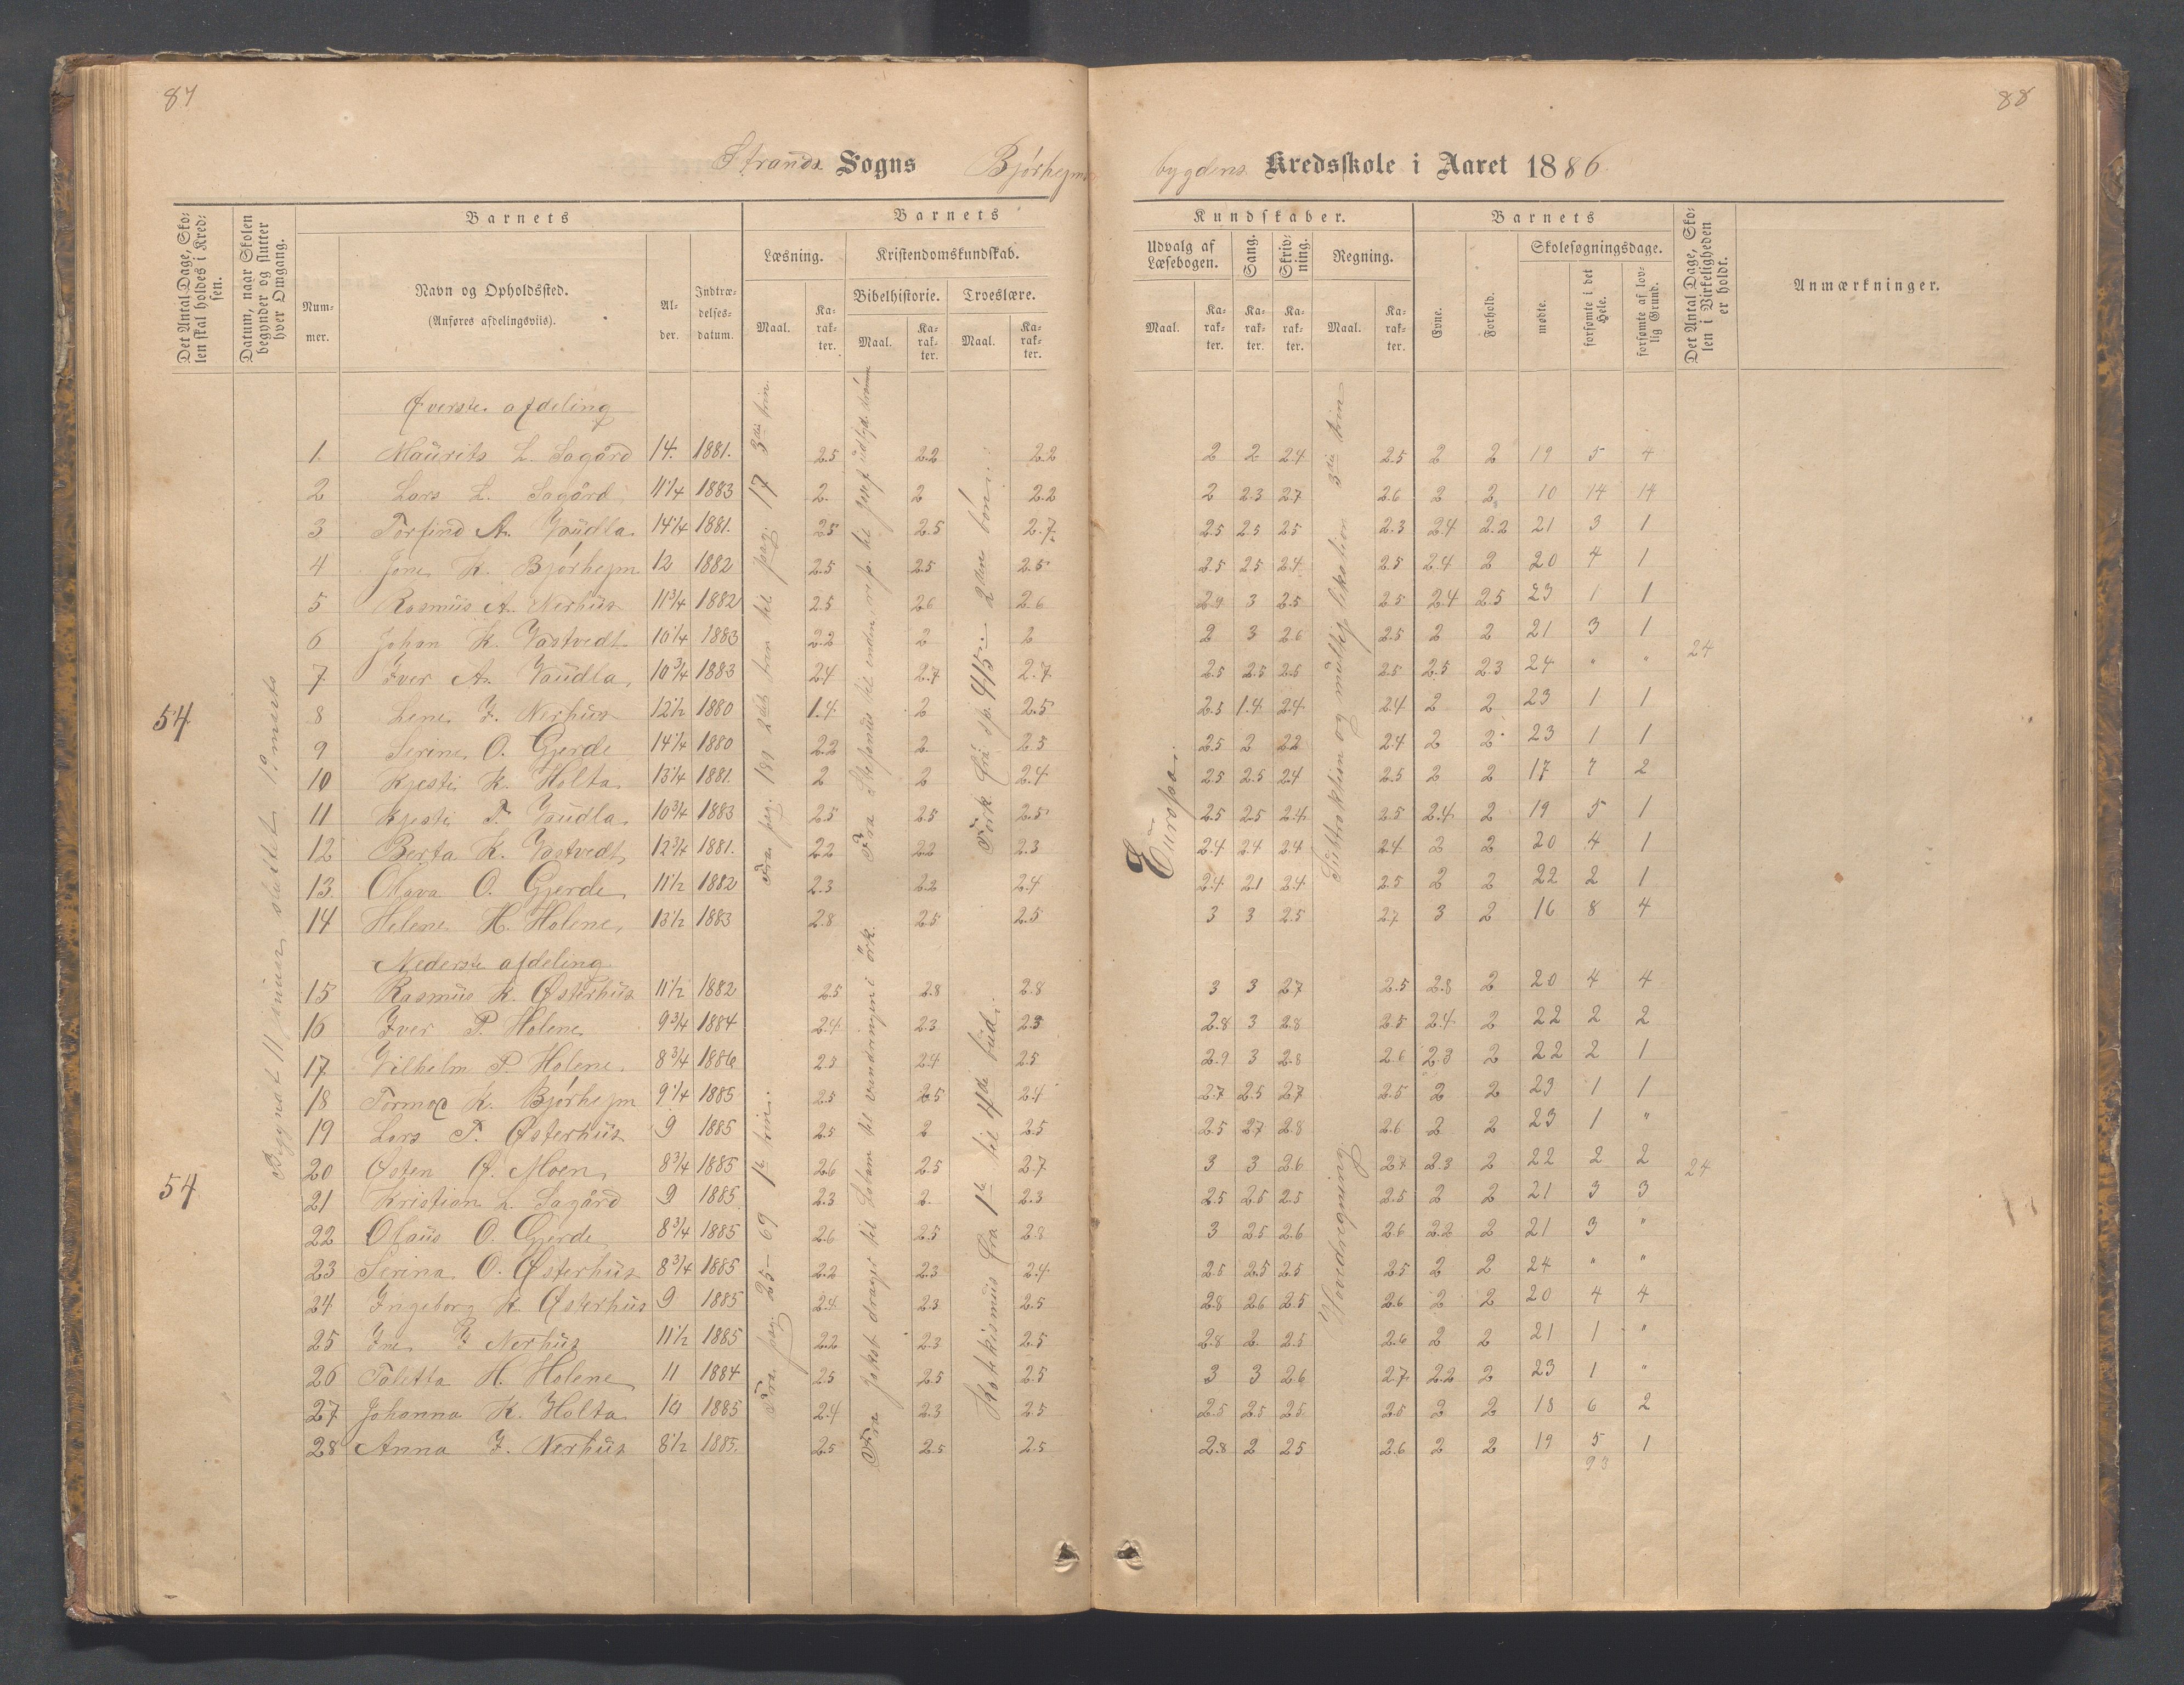 87
88
Strands Sogns Bjørhejms
bygdens Kredsskole i Aaret 1886
Det Antal Dage, Skolen skal holdes i Kredsen.
Datum, naar Skolen begynder og slutter hver Omgang.
Barnets
Nummer.
Navn og Opholdssted.
(Anføres afdelingsviis).
Alder.
Indtrædelsesdatum.
Barnets
Læsning.
Maal.
Karakter.
Kristendomskundskab.
Bibelhistorie.
Maal.
Karakter.
Troeslære.
Maal.
Karakter.
Kundskaber.
Udvalg af Læsebogen.
Maal.
Karakter.
Sang.
Karakter.
Skrivning.
Karakter.
Regning.
Maal.
Karakter.
Barnets
Evne.
Forhold.
Skolesøgningsdage.
mødte.
forsømte i det Hele.
forsømte af lovlig Grund.
Det Antal Dage, Skolen i Virkeligheden er holdt.
Anmærkninger.
Øverste afdeling
1. Maurits L. Sagård 14. 1881. 2.5 2.2 2.2 2 2 2.4 2.5 2 2 19 5 4
2 Lars L. Sagård 11 1/4 1883 2. 2 2.2 2 2.3 2.7 2.6 2 2 10 14 14
3 Torfind A. Voudla 14 1/4 1881. 2.5 2.5 2.7 2.5 2.5 2.5 2.3 2.4 2.2 21 3 1
4 Jone K. Bjørhejm 12 1882 2.5 2.5 2.5 2.5 2.5 2.4 2.5 2.4 2 20 4 1
5 Rasmus A. Nerhus 11 3/4 1882 2.5 2.6 2.6 2.9 3 2.5 2.5 2.4 2.5 23 1 1
6 Johan K. Vastvedt 10 1/4 1883 2.2 2 2 2 3 2.6 2.5 2 2 21 3 1
7 Iver A. Voudla 10 3/4 1883 2.4 2.7 2.7 2.5 2.5 2.5 2.5 2.5 2.3 24 " "
8 Lene I. Nerhus 12 1/2 1880 1.4 2 2.5 2.5 1.4 2.4 2.4 2 2 23 1 1
9 Serine O. Gjerde 14 1/4 1880 2.2 2. 2.5 2.5 2 2.2 2.4 2 2 23 1 1
10 Kjesti K. Holta 13 1/4 1881. 2 2 2.4 2.5 2.5 2.4 2.5 2 2 17 7 2
11 Kjesti T. Voudla 10 3/4 1883 2.5 2.5 2.5 2.5 2.5 2.4 2.5 2.4 2 19 5 1
12 Berta K. Vastvedt 12 3/4 1881. 2.2 2.2 2.3 2.4 2.4 2.4 2.4 2 2 20 4 1
13. Olava O. Gjerde 11 1/2 1882 2.3 2.2 2.4 2.4 2.1 2.4 2.5 2 2 22 2 1
14 Helene H. Holene 13 1/2 1883 2.8 2.5 2.5 3 3 2.5 2.7 3 2 16 8 4
Nederste afdeling
15 Rasmus K. Østerhus 11 1/2 1882 2.5 2.8 2.8 3 3 2.7 2.5 2.8 2 20 4 4
16 Iver P. Holene 9 3/4 1884 2.4 2.3 2.3 2.8 3 2.8 2.5 2.4 2 22 2 2
17 Vilhelm P. Holene 8 3/4 1886 2.5 2.4 2.5 2.9 3 2.8 2.6 2.3 2 22 2 1
18 Tormod K. Bjørhejm 9 1/4 1885 2.5 2.5 2.4 2.7 2.5 2.7 2.5 2 2 23 1 1
19 Lars T. Østerhus 9 1885 2.5 2 2.5 2.5 2.7 2.8 2.6 2 2 23 1 "
20 Østen Ø. Moen 8 3/4 1885 2.6 2.5 2.7 3 3 2.6 2.7 2.3 2 22 2 2
21 Kristian L. Sagård 9 1885 2.3 2. 2.3 2.5 2.5 2.5 2.5 2 2 21 3 3
22 Olaus O. Gjerde 8 3/4 1885 2.6 2.5 2.8 3 2.5 2.6 2.6 2.2 2 21 3 "
23 Serina O. Østerhus 8 3/4 1885 2.2 2.3 2.4 2.5 2.5 2.5 2.5 2 2 24 " "
24 Ingeborg K. Østerhus 9 1885 2.4 2.3 2.5 2.8 2.6 2.5 2.6 2 2 20 4 4
25 Ine I Nerhus 11 1/2 1885 2.2 2.3 2.5 2.8 2 2.5 2.6 2 2 21 1 "
26 Taletta H. Holene 11 1884 2.5 2.5 2.5 3 3 2.6 2.7 2.2 2 23 1 "
27 Johanna K. Holta 10 1885 2.4 2.3 2.5 2.5 2.5 2.5 2.5 2 2 18 6 2
28 Anna I. Nerhus 8 1/2 1885. 2.5 2.5 2.5 2.8 2 2.5 2.6 2 2 19 5 1
93
54
54
Begyndt 11 januar sluttet 19 marts
Fra pag. 181 2det trin til pag. 17 3die trin.
Fra pag. 25 – 69 1te trin.
Fra Stefanus til enden, rep. til Josef
Fra Jakob drager til Laban til vandringen i ørk.
Fork. fra sp. 415 – 2den bøn.
Katekismus fra 1te til 4de bud.
Europa.
Subtraktion og multiplikation 3die trin
Hovedregning
24
24